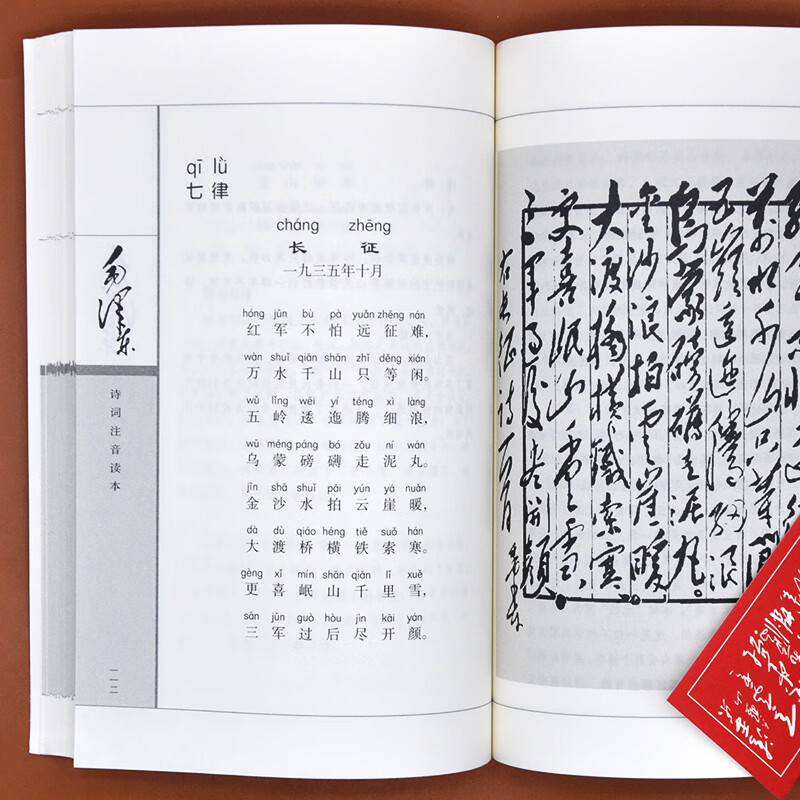 毛泽东
诗词注音读本
一一二
qī lǜ
七律
cháng zhēng
长征
一九三五年十月
hóng jūn bù pà yuǎn zhēng nán
红军不怕远征难，
wàn shuǐ qiān shān zhǐ děng xián
万水千山只等闲。
wǔ lǐng wēi yí téng xì làng
五岭逶迤腾细浪，
wū méng páng bó zǒu ní wán
乌蒙磅礴走泥丸。
jīn shā shuǐ pāi yún yá nuǎn
金沙水拍云崖暖，
dà dù qiáo héng tiě suǒ hán
大渡桥横铁索寒。
gèng xǐ mín shān qiān lǐ xuě
更喜岷山千里雪，
sān jūn guò hòu jìn kāi yán
三军过后尽开颜。
五嶺逶迤騰細浪
烏蒙磅礴走泥丸。
金沙浪拍雲崖暖
大渡橋橫鐵索寒
更喜岷山千里雪
三軍過後盡開顏
右长征诗一首